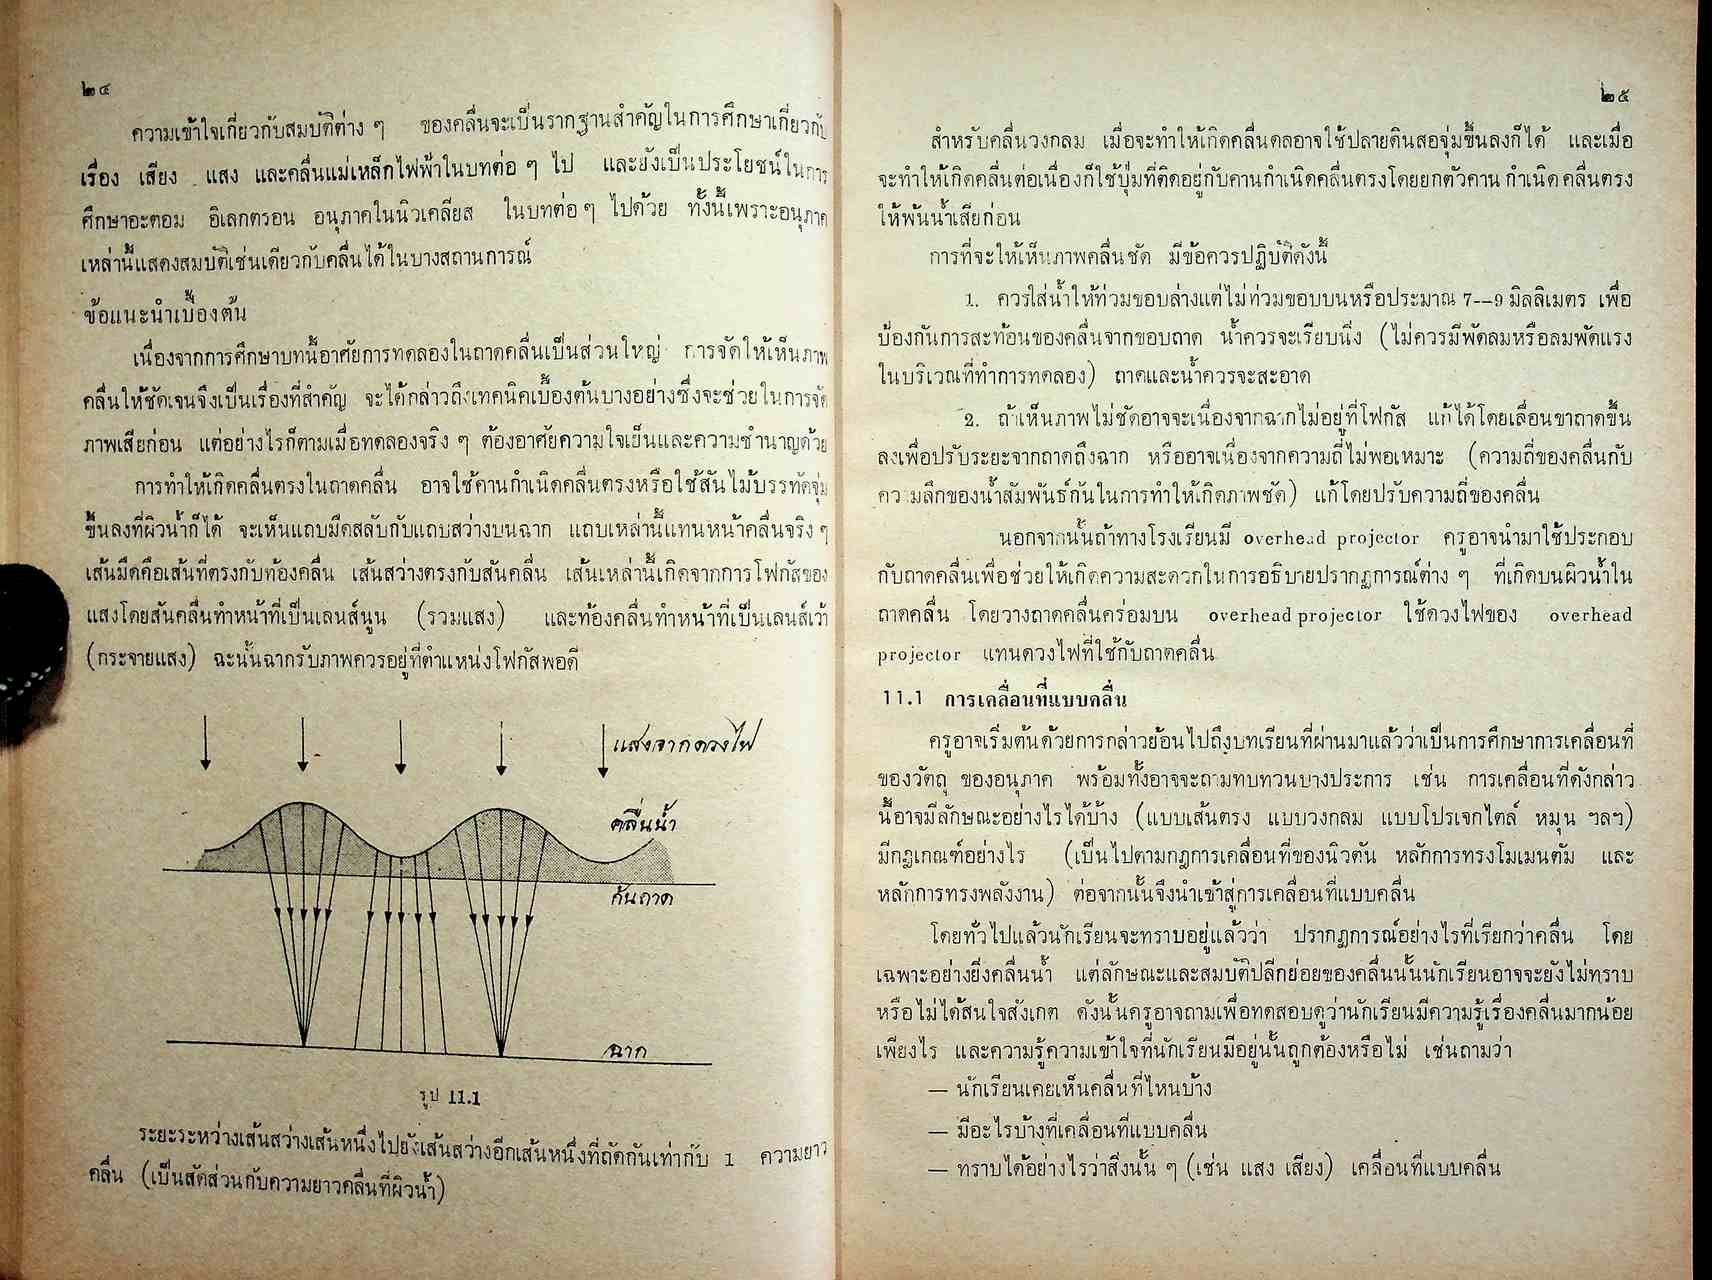 ๒๔
ความเข้าใจเกี่ยวกับสมบัติต่าง ๆ ของคลื่นจะเป็นรากฐานสำคัญในการศึกษาเกี่ยวกับ
เรื่อง เสียง แสง และคลื่นแม่เหล็กไฟฟ้าในบทต่อ ๆ ไป และยังเป็นประโยชน์ในการ
ศึกษาอะตอม อิเลกตรอน อนุภาคในนิวเคลียส ในบทต่อ ๆ ไปด้วย ทั้งนี้เพราะอนุภาค
เหล่านี้แสดงสมบัติเช่นเดียวกับคลื่นได้ในบางสถานการณ์
ข้อแนะนำเบื้องต้น
เนื่องจากการศึกษาบทนี้อาศัยการทดลองในถาดคลื่นเป็นส่วนใหญ่ การจัดให้เห็นภาพ
คลื่นให้ชัดเจนจึงเป็นเรื่องที่สำคัญ จะได้กล่าวถึงเทคนิคเบื้องต้นบางอย่างซึ่งจะช่วยในการจัด
ภาพเสียก่อน แต่อย่างไรก็ตามเมื่อทดลองจริง ๆ ต้องอาศัยความใจเย็นและความชำนาญด้วย
การทำให้เกิดคลื่นตรงในถาดคลื่น อาจใช้คานกำเนิดคลื่นตรงหรือใช้สันไม้บรรทัดจุ่ม
ขึ้นลงที่ผิวน้ำก็ได้ จะเห็นแถบมืดสลับกับแถบสว่างบนฉาก แถบเหล่านี้แทนหน้าคลื่นจริง ๆ
เส้นมืดคือเส้นที่ตรงกับท้องคลื่น เส้นสว่างตรงกับสันคลื่น เส้นเหล่านี้เกิดจากการโฟกัสของ
แสงโดยสันคลื่นทำหน้าที่เป็นเลนส์นูน (รวมแสง) และท้องคลื่นทำหน้าที่เป็นเลนส์เว้า
(กระจายแสง) ฉะนั้นฉากรับภาพควรอยู่ที่ตำแหน่งโฟกัสพอดี
แสงจากดวงไฟ
คลื่นน้ำ
ก้นถาด
ฉาก
รูป 11.1
ระยะระหว่างเส้นสว่างเส้นหนึ่งไปยังเส้นสว่างอีกเส้นหนึ่งที่ถัดกันเท่ากับ 1 ความยาว
คลื่น (เป็นสัดส่วนกับความยาวคลื่นที่ผิวน้ำ)
๒๕
สำหรับคลื่นวงกลม เมื่อจะทำให้เกิดคลื่นดลอาจใช้ปลายดินสอจุ่มขึ้นลงก็ได้ และเมื่อ
จะทำให้เกิดคลื่นต่อเนื่องก็ใช้ปุ่มที่ติดอยู่กับคานกำเนิดคลื่นตรงโดยยกตัวคานกำเนิดคลื่นตรง
ให้พ้นน้ำเสียก่อน
การที่จะให้เห็นภาพคลื่นชัด มีข้อควรปฏิบัติดังนี้
1. ควรใส่น้ำให้ท่วมขอบล่างแต่ไม่ท่วมขอบบนหรือประมาณ 7--9 มิลลิเมตร เพื่อ
ป้องกันการสะท้อนของคลื่นจากขอบถาด น้ำควรจะเรียบนิ่ง (ไม่ควรมีพัดลมหรือลมพัดแรง
ในบริเวณที่ทำการทดลอง) ถาดและน้ำควรจะสะอาด
2. ถ้าเห็นภาพไม่ชัดอาจจะเนื่องจากฉากไม่อยู่ที่โฟกัส แก้ได้โดยเลื่อนขาถาดขึ้น
ลงเพื่อปรับระยะจากถาดถึงฉาก หรืออาจเนื่องจากความถี่ไม่พอเหมาะ (ความถี่ของคลื่นกับ
ความลึกของน้ำสัมพันธ์กันในการทำให้เกิดภาพชัด) แก้โดยปรับความถี่ของคลื่น
นอกจากนั้นถ้าทางโรงเรียนมี overhead projector ครูอาจนำมาใช้ประกอบ
กับถาดคลื่นเพื่อช่วยให้เกิดความสะดวกในการอธิบายปรากฏการณ์ต่าง ๆ ที่เกิดบนผิวน้ำใน
ถาดคลื่น โดยวางถาดคลื่นคร่อมบน overhead projector ใช้ดวงไฟของ overhead
projector แทนดวงไฟที่ใช้กับถาดคลื่น
11.1 การเคลื่อนที่แบบคลื่น
ครูอาจเริ่มต้นด้วยการกล่าวย้อนไปถึงบทเรียนที่ผ่านมาแล้วว่าเป็นการศึกษาการเคลื่อนที่
ของวัตถุ ของอนุภาค พร้อมทั้งอาจจะถามทบทวนบางประการ เช่น การเคลื่อนที่ดังกล่าว
นี้อาจมีลักษณะอย่างไรได้บ้าง (แบบเส้นตรง แบบวงกลม แบบโปรเจกไตล์ หมุน ฯลฯ)
มีกฎเกณฑ์อย่างไร (เป็นไปตามกฎการเคลื่อนที่ของนิวตัน หลักการทรงโมเมนตัม และ
หลักการทรงพลังงาน) ต่อจากนั้นจึงนำเข้าสู่การเคลื่อนที่แบบคลื่น
โดยทั่วไปแล้วนักเรียนจะทราบอยู่แล้วว่า ปรากฏการณ์อย่างไรที่เรียกว่าคลื่น โดย
เฉพาะอย่างยิ่งคลื่นน้ำ แต่ลักษณะและสมบัติปลีกย่อยของคลื่นนั้นนักเรียนอาจจะยังไม่ทราบ
หรือไม่ได้สนใจสังเกต ดังนั้นครูอาจถามเพื่อทดสอบดูว่านักเรียนมีความรู้เรื่องคลื่นมากน้อย
เพียงไร และความรู้ความเข้าใจที่นักเรียนมีอยู่นั้นถูกต้องหรือไม่ เช่นถามว่า
— นักเรียนเคยเห็นคลื่นที่ไหนบ้าง
— มีอะไรบ้างที่เคลื่อนที่แบบคลื่น
— ทราบได้อย่างไรว่าสิ่งนั้น ๆ (เช่น แสง เสียง) เคลื่อนที่แบบคลื่น